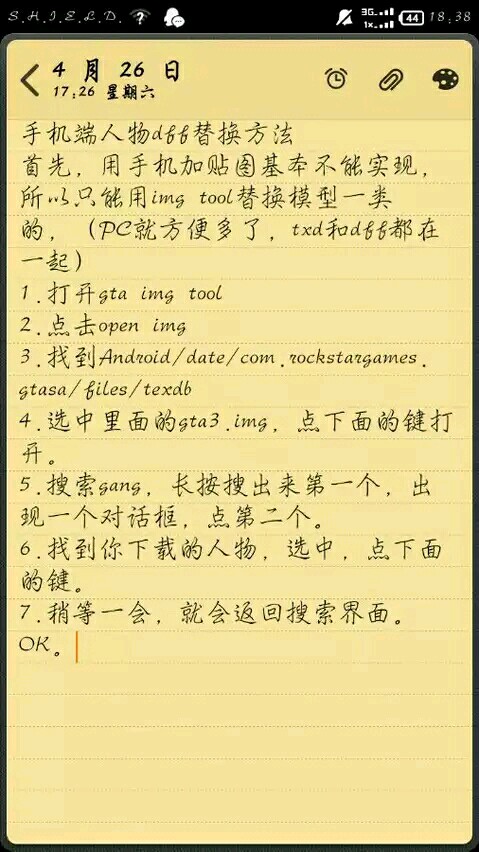 S.H.I.E.L.D. 3G 1x 44 18:38
4 月 26 日
17:26 星期六
手机端人物dff替换方法
首先，用手机加贴图基本不能实现，
所以只能用img tool替换模型一类
的，（PC就方便多了，txd和dff都在
一起）
1.打开gta img tool
2.点击open img
3.找到Android/date/com.rockstargames.
gtasa/files/texdb
4.选中里面的gta3.img，点下面的键打
开。
5.搜索gang，长按搜出来第一个，出
现一个对话框，点第二个。
6.找到你下载的人物，选中，点下面
的键。
7.稍等一会，就会返回搜索界面。
OK。